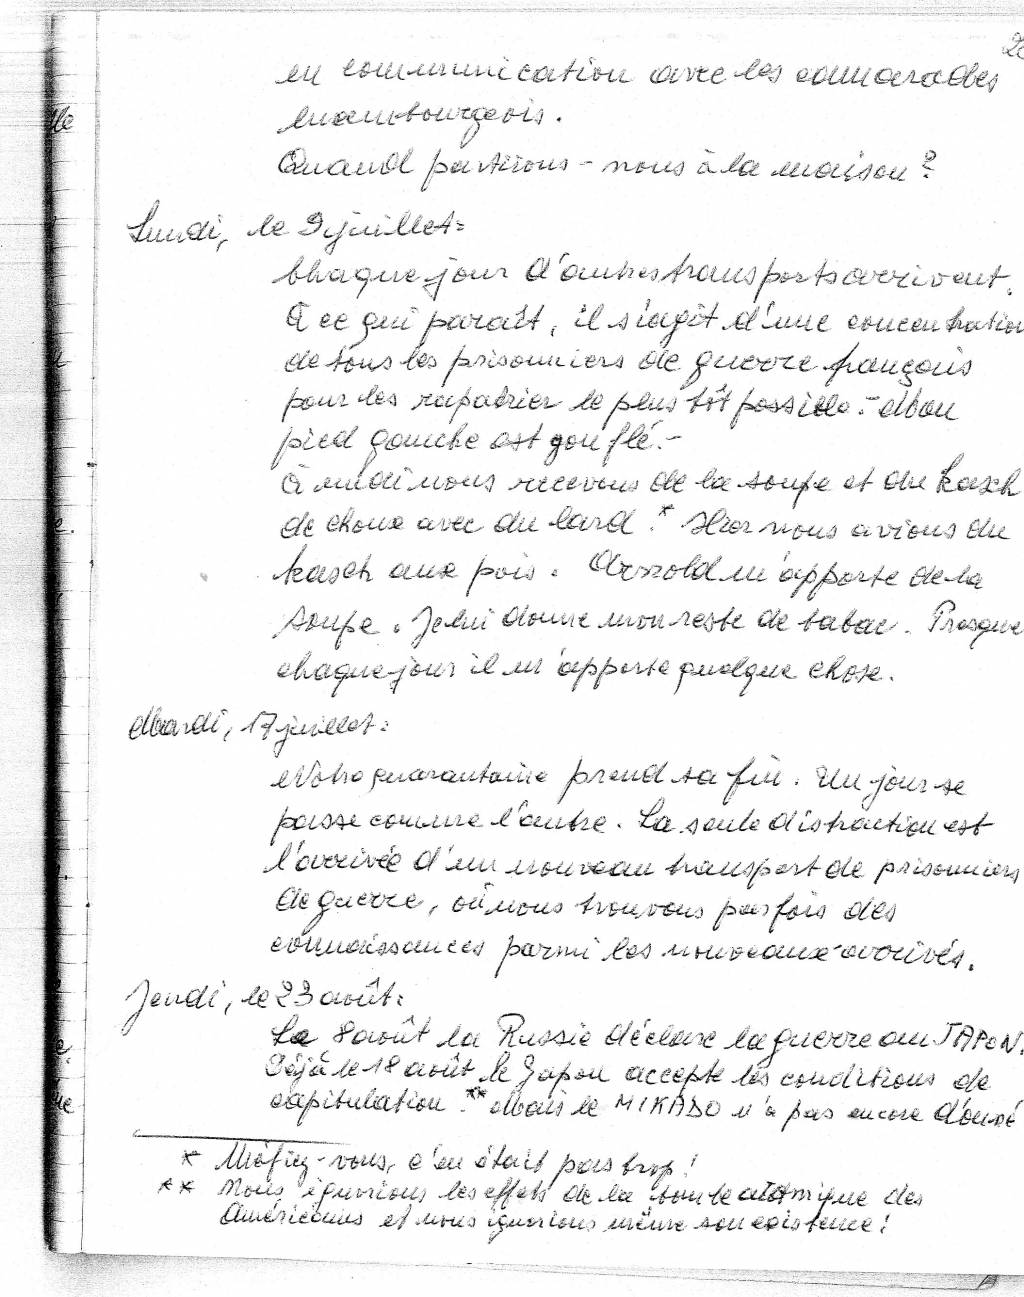 en communication avec les camarades
luxembourgeois.
Quand partirons-nous à la maison?
Lundi, le 9 juillet:
Chaque jour d'autres transports arrivent.
À ce qui paraît, il s'agit d'une concentration
de tous les prisonniers de guerre français
pour les rapatrier le plus tôt possible.- Mon
pied gauche est gonflé.-
À midi nous recevons de la soupe et du kasch
de choux avec du lard.* Hier nous avions du
kasch aux pois. m'apporte de la
soupe. Je lui donne mon reste de tabac. Presque
chaque jour il m'apporte quelque chose.
Mardi, 17 juillet:
Notre quarantaine prend sa fin. Un jour se
passe comme l'autre. La seule distraction est
l'arrivée d'un nouveau transport de prisonniers
de guerre, où nous trouvons parfois des
connaissances parmi les nouveaux-arrivés.
Jeudi, le 23 août:
Le 8 août la Russie déclare la guerre au JAPON.
Déjà le 18 août le Japon accepte les conditions de
capitulation.** Mais le MIKADO n'a pas encore donné
* Méfiez-vous, c'en était pas trop!
** Nous ignorions les effets de la bombe atomique des
Américains et nous ignorions même son existence!